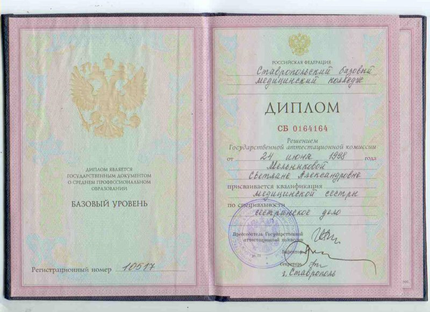 ДИПЛОМ ЯВЛЯЕТСЯ
ГОСУДАРСТВЕННЫМ ДОКУМЕНТОМ
О СРЕДНЕМ ПРОФЕССИОНАЛЬНОМ
ОБРАЗОВАНИИ
БАЗОВЫЙ УРОВЕНЬ
Регистрационный номер 10517
РОССИЙСКАЯ ФЕДЕРАЦИЯ
Ставропольский базовый
медицинский колледж
ДИПЛОМ
СБ 0164164
Решением
Государственной аттестационной комиссии
от 24 июня 1998 года
Мельниковой
Светлане Александровне
присваивается квалификация
медицинской сестры
по специальности
сестринское дело
Председатель Государственной
аттестационной комиссии
г. Ставрополь